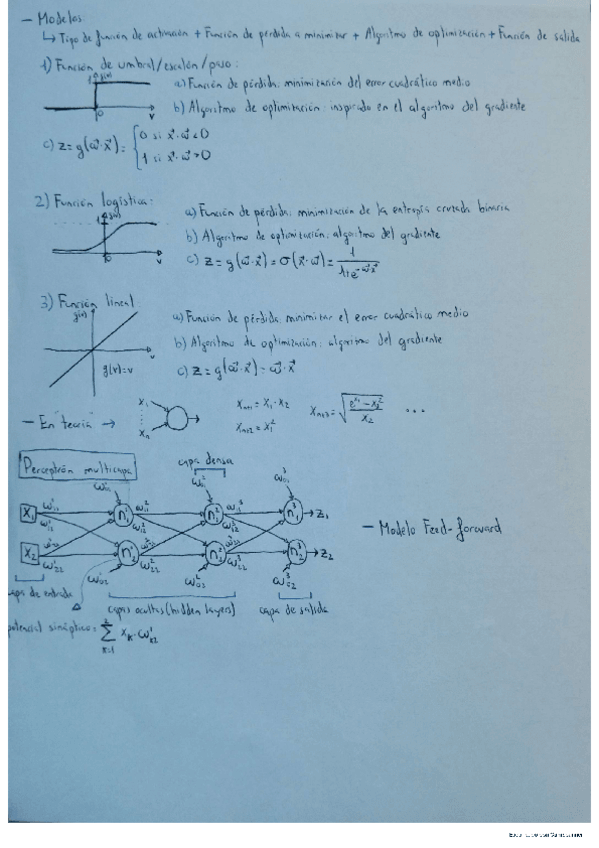 - Modelos
↳ Tipo de función de activación + Función de pérdida a minimizar + Algoritmo de optimización + Función de salida
1) Función de umbral/escalón/paso:
g(v)
1
0
v
a) Función de pérdida: minimización del error cuadrático medio
b) Algoritmo de optimización: inspirado en el algoritmo del gradiente
c) z = g(w⃗·x⃗) = { 0 si x⃗·w⃗ < 0
1 si x⃗·w⃗ > 0
2) Función logística:
g(v)
1
0
v
a) Función de pérdida: minimización de la entropía cruzada binaria
b) Algoritmo de optimización: algoritmo del gradiente
c) z = g(w⃗·x⃗) = σ(x⃗·w⃗) = 1/(1+e^(-w⃗·x⃗))
3) Función lineal:
g(v)
v
g(v)=v
a) Función de pérdida: minimizar el error cuadrático medio
b) Algoritmo de optimización: algoritmo del gradiente
c) z = g(w⃗·x⃗) = w⃗·x⃗
- En "teoría" →
x₁
xₙ
xₙ₊₁ = x₁·x₂
xₙ₊₂ = x₁²
xₙ₊₃ = ...
Perceptrón multicapa
capa densa
x₁
x₂
n₁¹
n₂¹
n₁²
n₂²
n₁³
n₂³
z₁
z₂
- Modelo Feed-forward
capa de entrada
capas ocultas (hidden layers)
capa de salida
potencial sináptico: Σ xₖ·wₖ₂¹
k=1